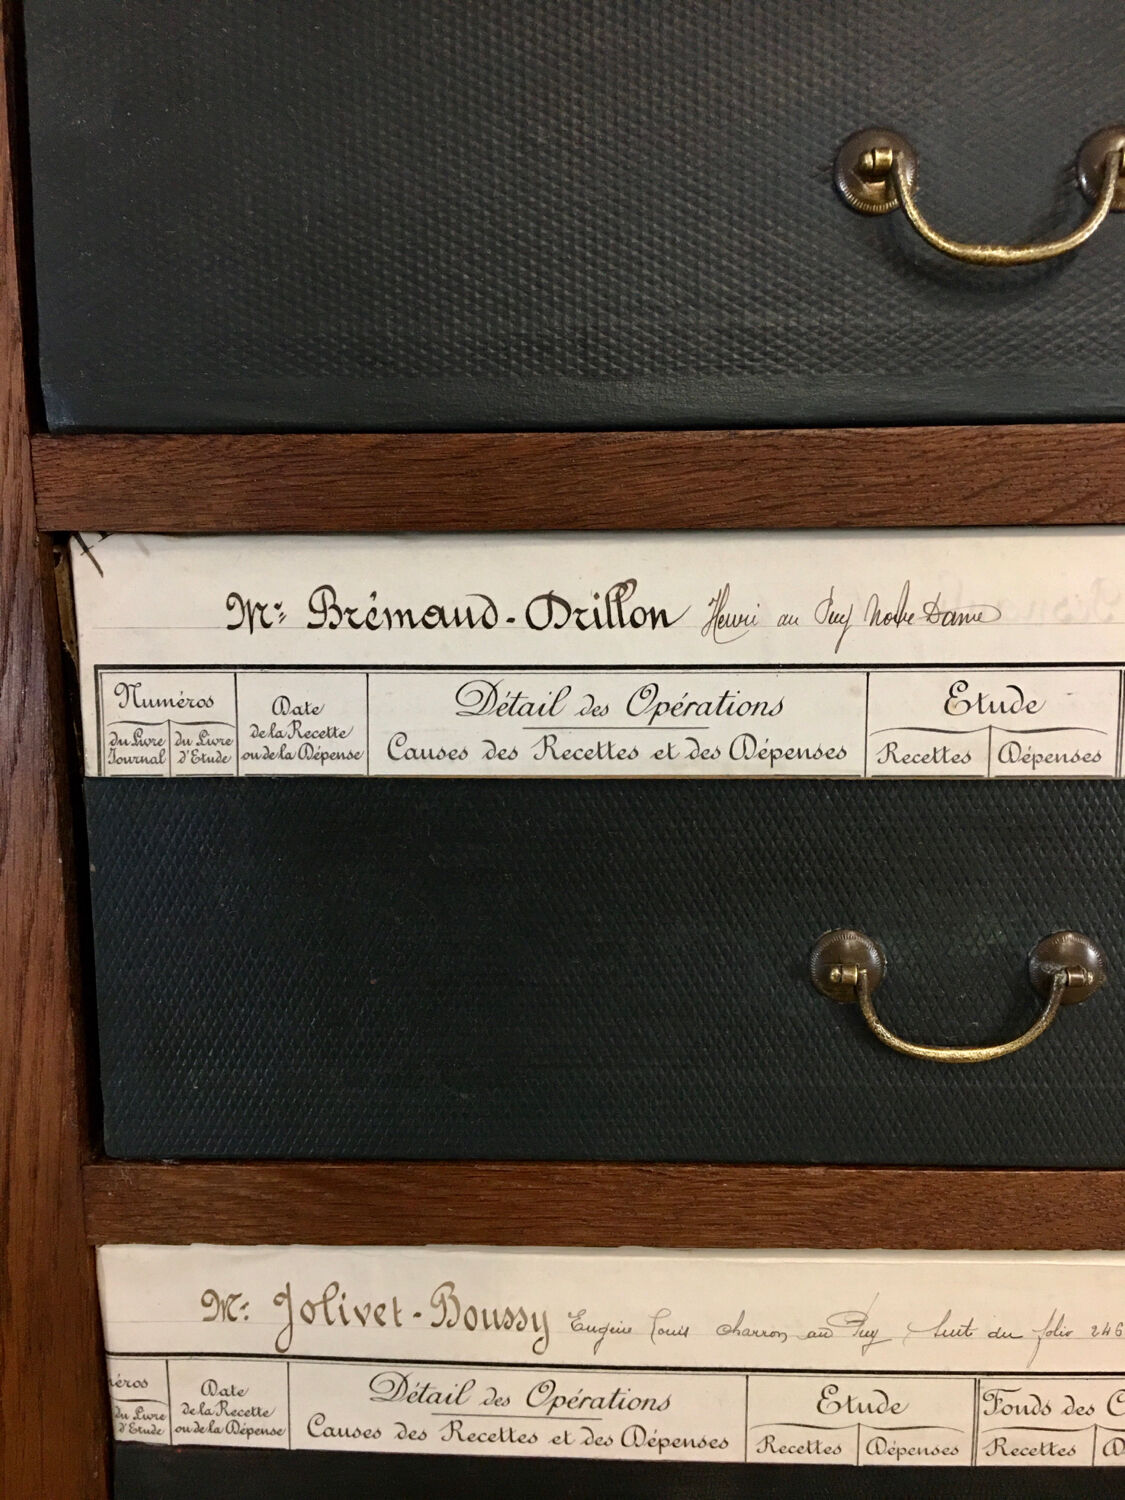 Mr: Brémaud-Drillon Henri au Puy Notre Dame
Numéros
du Livre Journal
du Livre d'Etude
Date
de la Recette
ou de la Dépense
Détail des Opérations
Causes des Recettes et des Dépenses
Etude
Recettes Dépenses
Mr: Jolivet-Boussy Eugène Louis charron au Puy Suit du folio 246
éros
du Livre
d'Etude
Date
de la Recette
ou de la Dépense
Détail des Opérations
Causes des Recettes et des Dépenses
Etude
Recettes Dépenses
Fonds des C
Recettes D